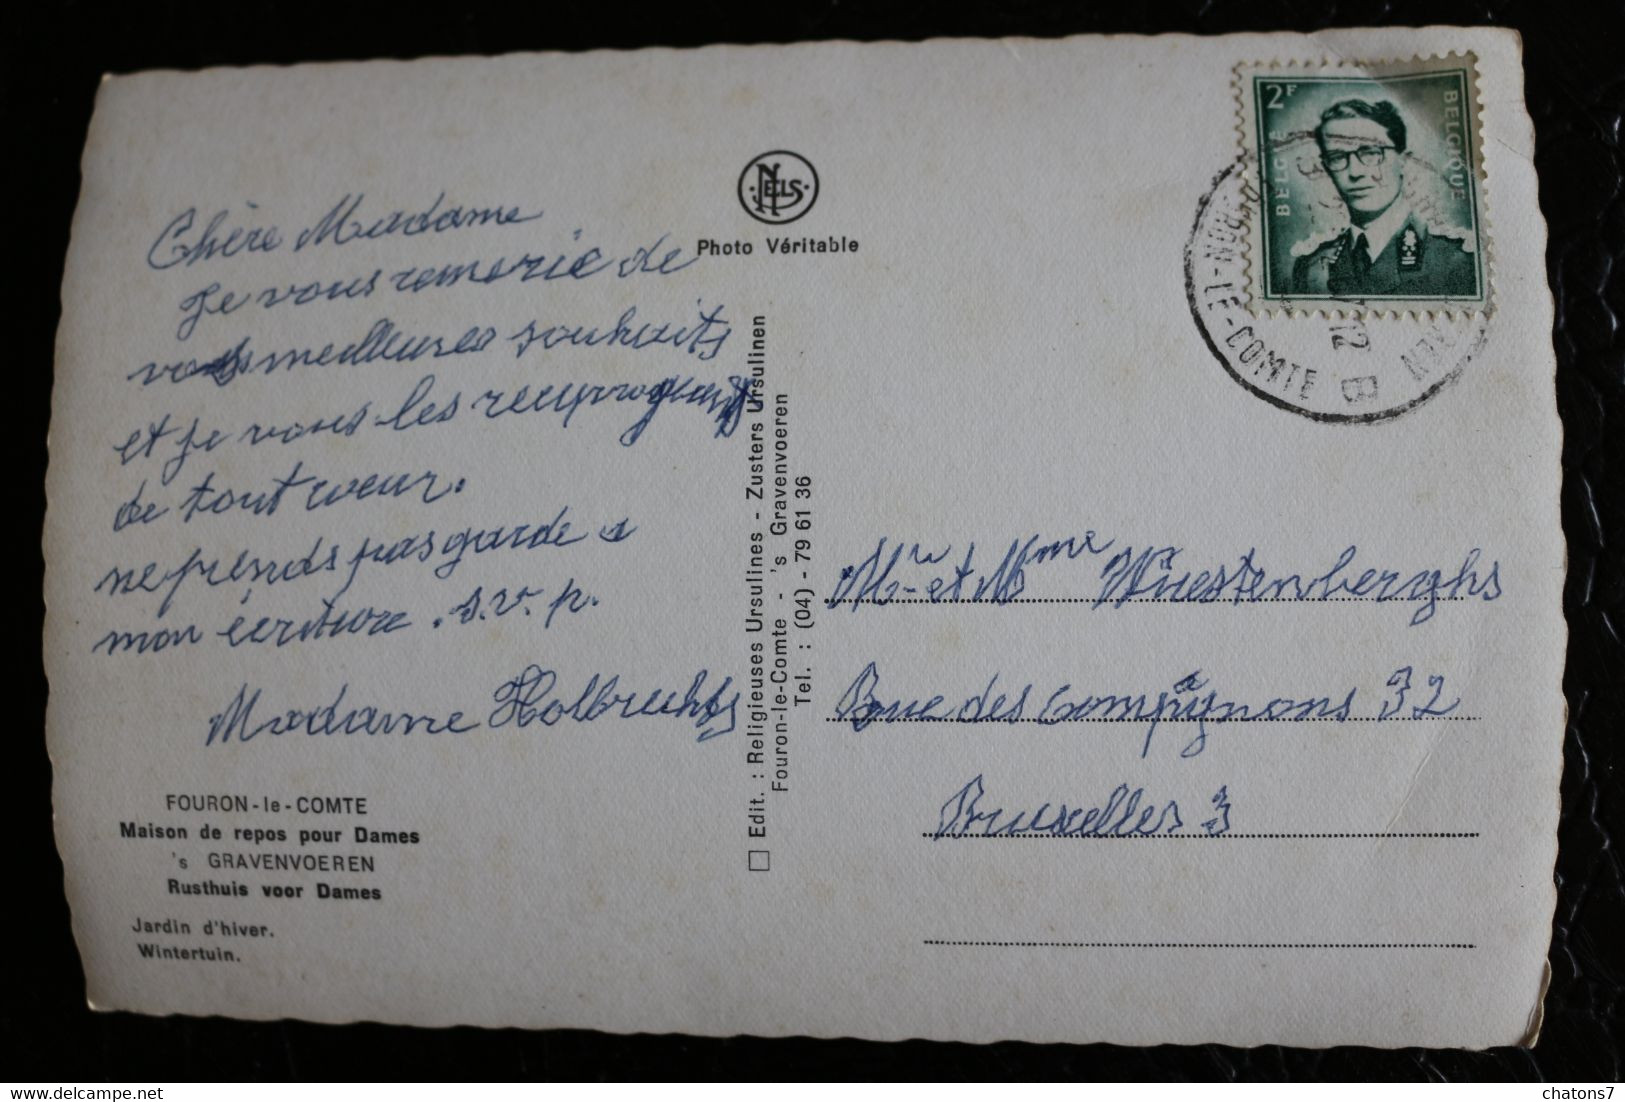 Chère Madame
Je vous remerie de
vos meilleures souhaits
et je vous les
de tout cœur.
ne prends pas garde a
mon écriture . s.v.p.
Madame Holbrechts
FOURON-le-COMTE
Maison de repos pour Dames
's GRAVENVOEREN
Rusthuis voor Dames
Jardin d'hiver.
Wintertuin.
NELS
Photo Véritable
Edit. : Religieuses Ursulines - Zusters Ursulinen
Fouron-le-Comte - 's Gravenvoeren
Tel. : (04) - 79 61 36
2F
BELGIE
BELGIQUE
LE-COMTE
12
B
Mr et Mme Wuestenberghs
Rue des Compagnons 32
Bruxelles 3
delcampe.net
chatons7